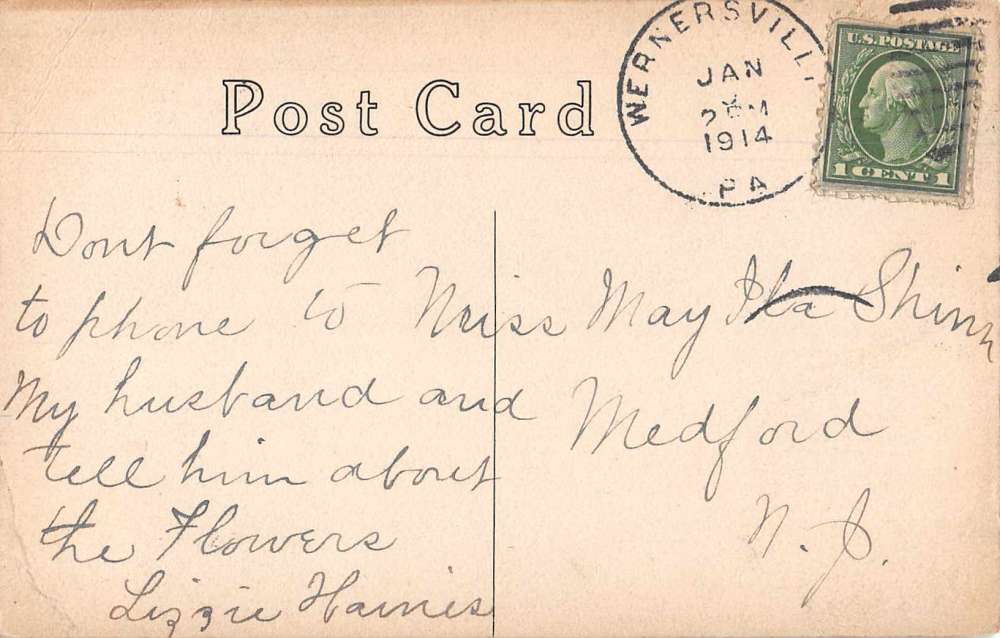 Post Card
WERNERSVILL
JAN
2 PM
1914
PA
U.S. POSTAGE
1 CENT 1
Dont forget
to phone to
My husband and
tell him about
the Flowers
Lizzie Haines
Miss May Ila Shinn
Medford
N. J.